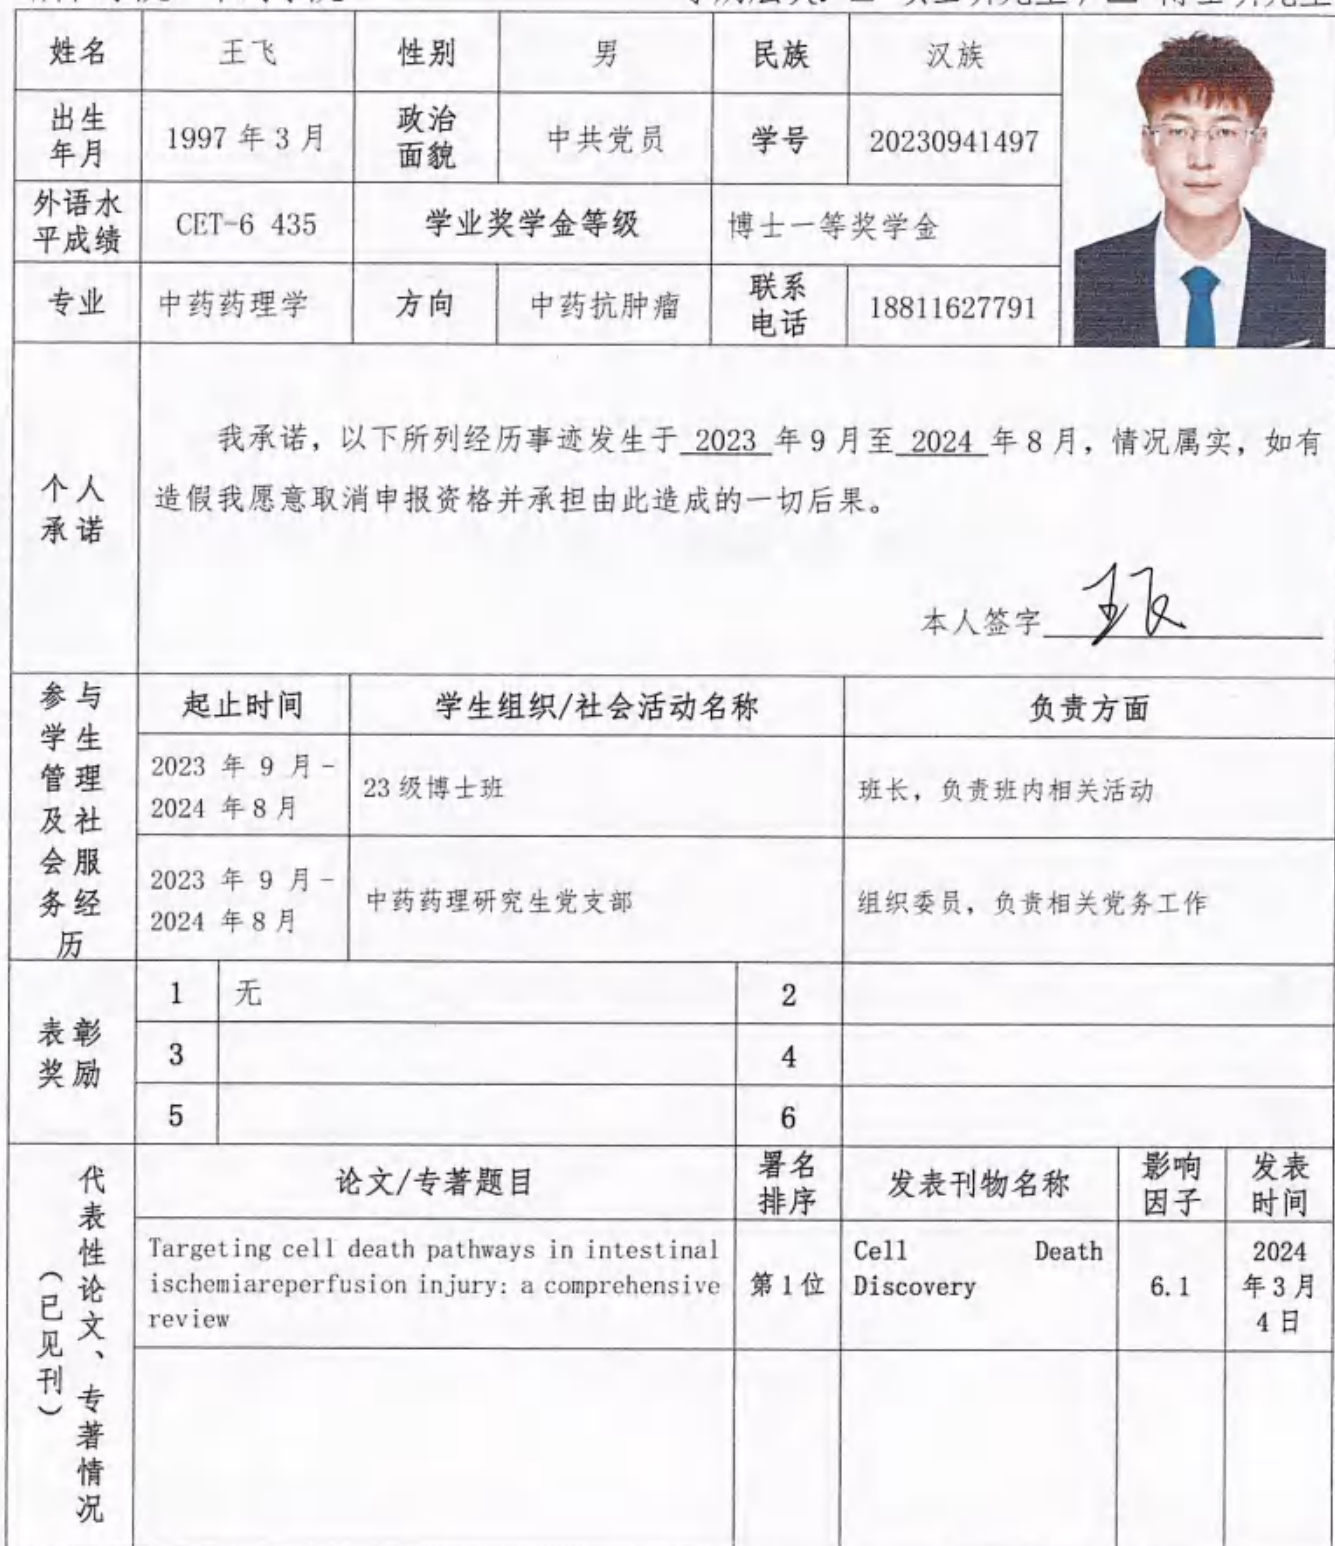 姓名 王飞 性别 男 民族 汉族
出生年月 1997 年 3 月 政治面貌 中共党员 学号 20230941497
外语水平成绩 CET-6 435 学业奖学金等级 博士一等奖学金
专业 中药药理学 方向 中药抗肿瘤 联系电话 18811627791
个人承诺
我承诺，以下所列经历事迹发生于 2023 年 9 月至 2024 年 8 月，情况属实，如有
造假我愿意取消申报资格并承担由此造成的一切后果。
本人签字 王飞
参与学生管理及社会服务经历
起止时间 学生组织/社会活动名称 负责方面
2023 年 9 月-
2024 年 8 月
23 级博士班 班长，负责班内相关活动
2023 年 9 月-
2024 年 8 月
中药药理研究生党支部 组织委员，负责相关党务工作
表彰奖励
1 无 2
3 4
5 6
代表性论文、专著情况
（已见刊）
论文/专著题目 署名排序 发表刊物名称 影响因子 发表时间
Targeting cell death pathways in intestinal
ischemiareperfusion injury: a comprehensive
review
第 1 位
Cell Death
Discovery
6.1
2024
年 3 月
4 日